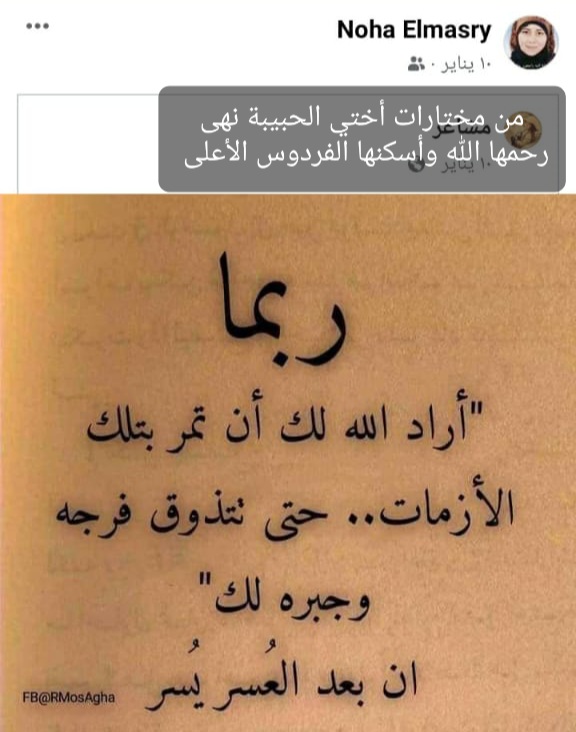 Noha Elmasry
١٠ يناير
من مختارات أختي الحبيبة نهى
رحمها الله وأسكنها الفردوس الأعلى
مشاعر
١٠ يناير
ربما
"أراد الله لك أن تمر بتلك
الأزمات.. حتى تتذوق فرجه
وجبره لك"
ان بعد العُسر يُسر
FB@RMosAgha